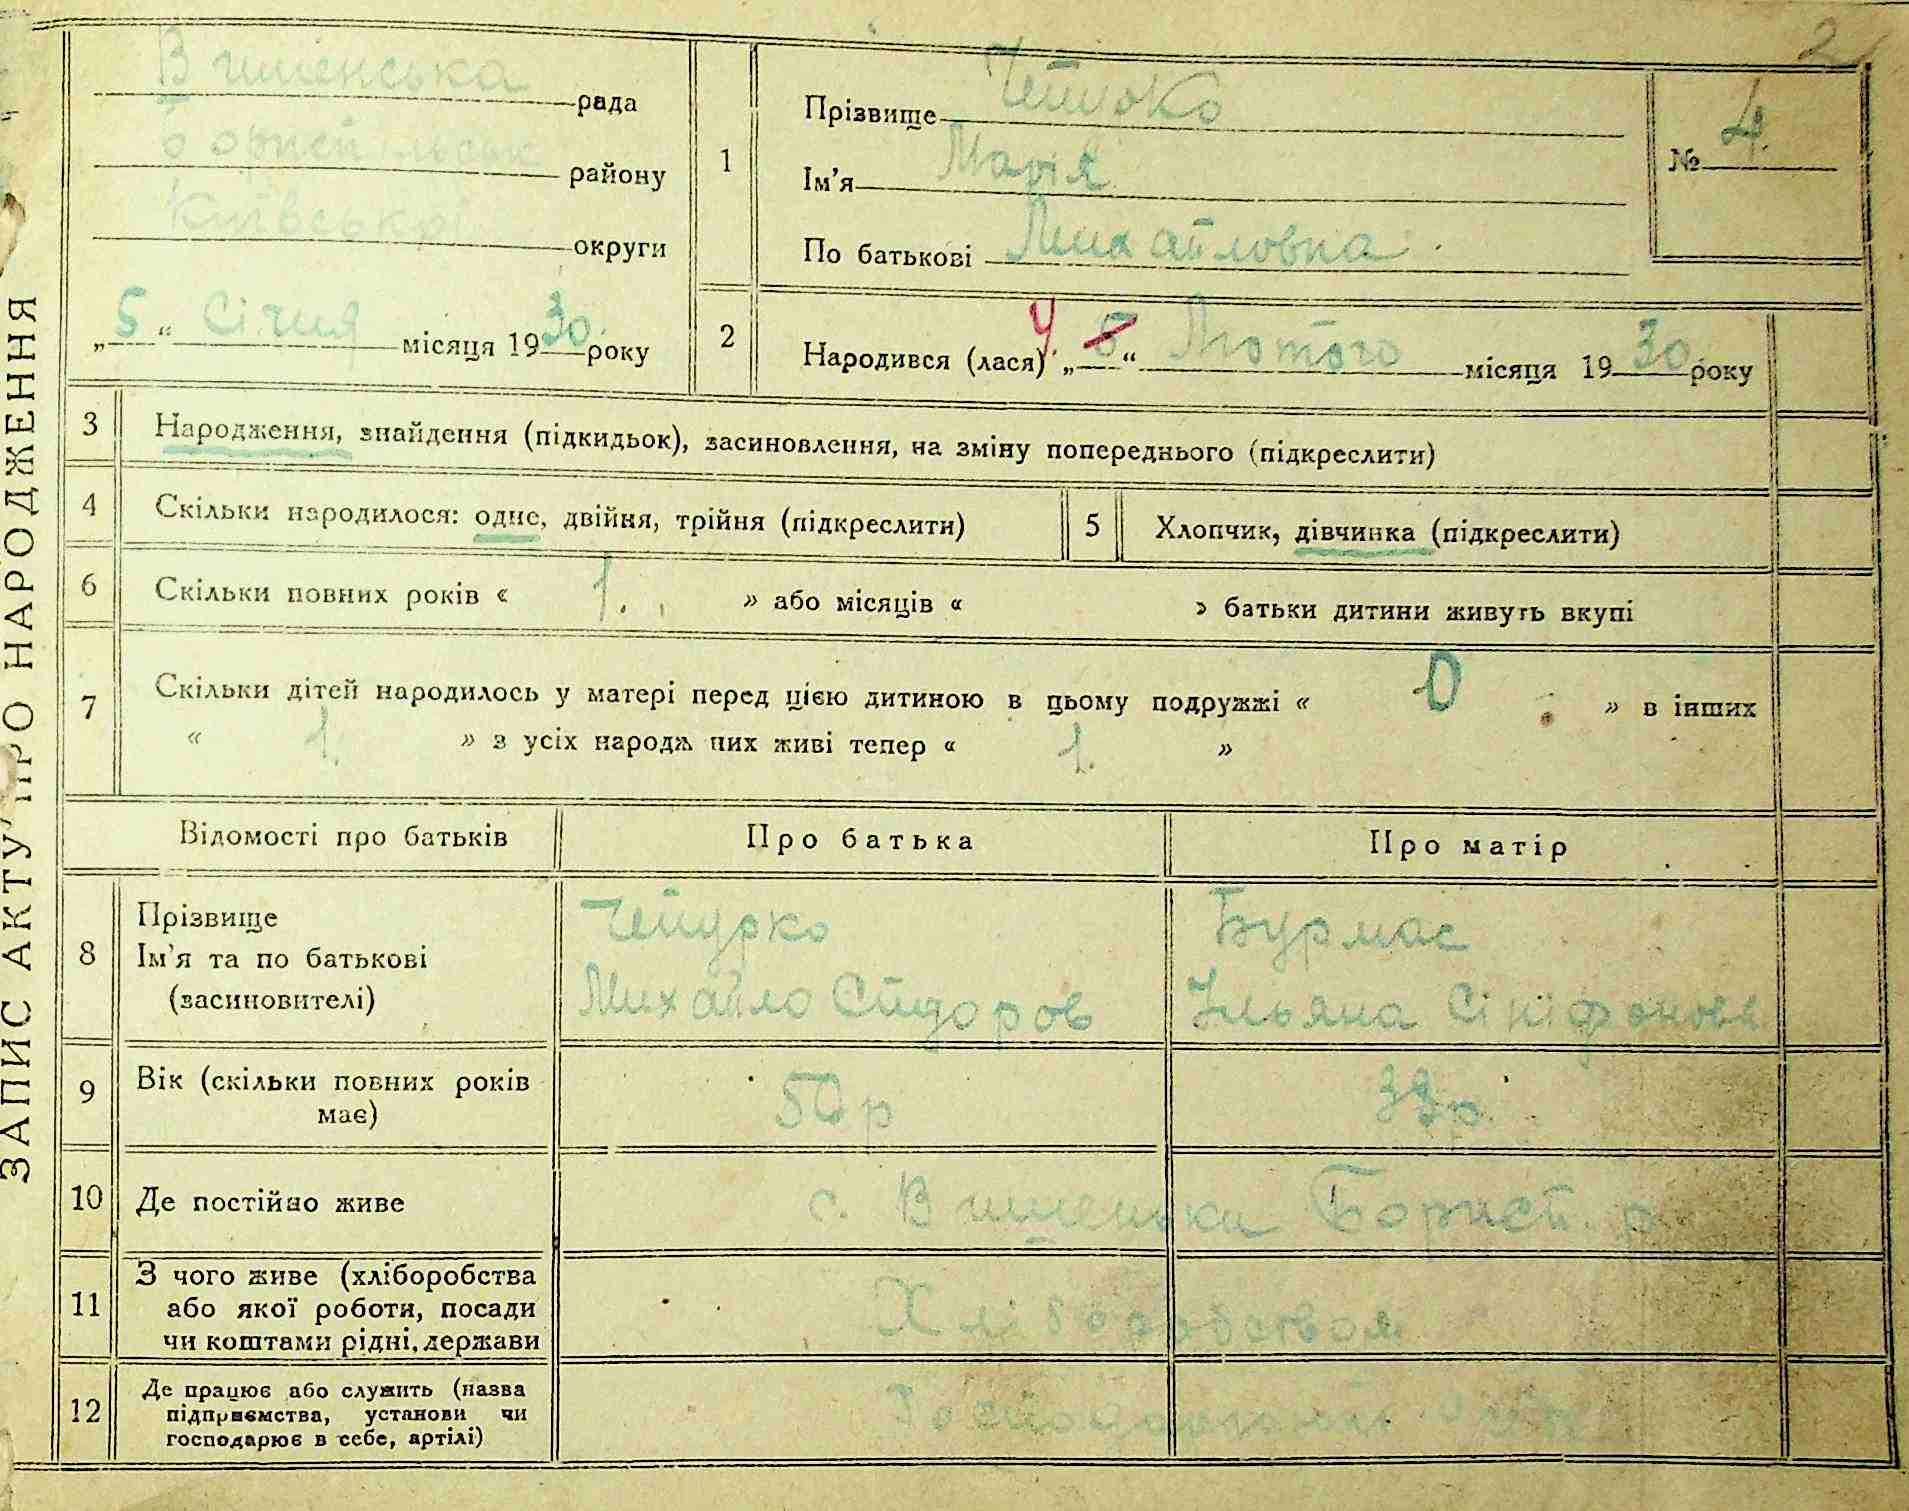 2
ЗАПИС АКТУ ПРО НАРОДЖЕННЯ
Вишенська рада
Бориспільськ району
Київської округи
„5“ Січня місяця 1930. року
1
Прізвище Чепурко
Ім'я Марія
По батькові Михайловна.
№ 4.
2
Народився (лася) 4. „5“ Лютого місяця 1930 року
3 Народження, знайдення (підкидьок), засиновлення, на зміну попереднього (підкреслити)
4 Скільки народилося: одне, двійня, трійня (підкреслити)
5 Хлопчик, дівчинка (підкреслити)
6 Скільки повних років « 1. » або місяців « » батьки дитини живуть вкупі
7 Скільки дітей народилось у матері перед цією дитиною в цьому подружжі « 0 » в інших
« 1. » з усіх народж них живі тепер « 1. »
Відомості про батьків Про батька Про матір
8 Прізвище Чепурко Бурмас
Ім'я та по батькові
(засиновителі) Михайло Сидоров Ульяна
9 Вік (скільки повних років
має) 50р р.
10 Де постійно живе с. Вишеньки Борисп. р.
11 З чого живе (хліборобства
або якої роботи, посади
чи коштами рідні, держави Хліборобством
12 Де працює або служить (назва
підприємства, установи чи
господарює в себе, артілі)